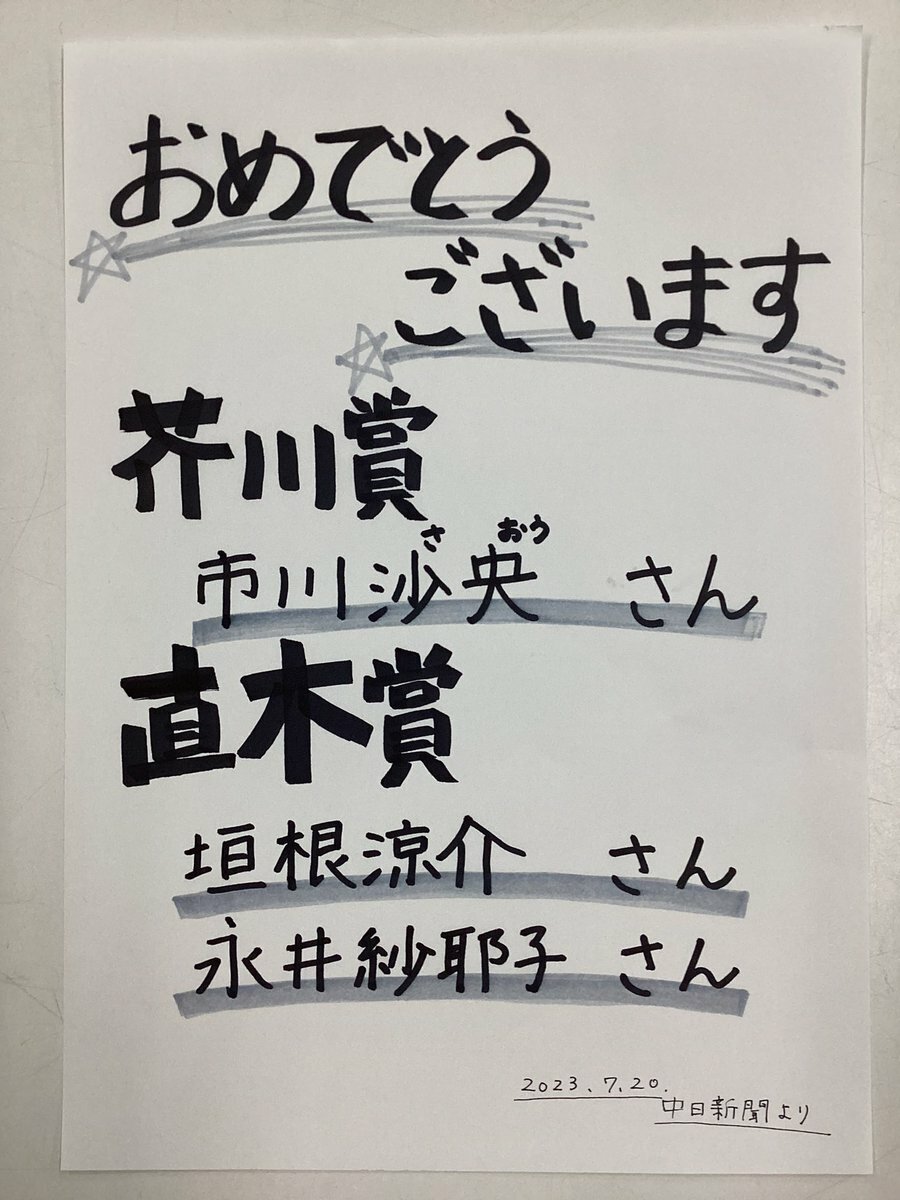 おめでとう
ございます
芥川賞
さ おう
市川沙央 さん
直木賞
垣根涼介 さん
永井紗耶子 さん
2023.7.20.
中日新聞より